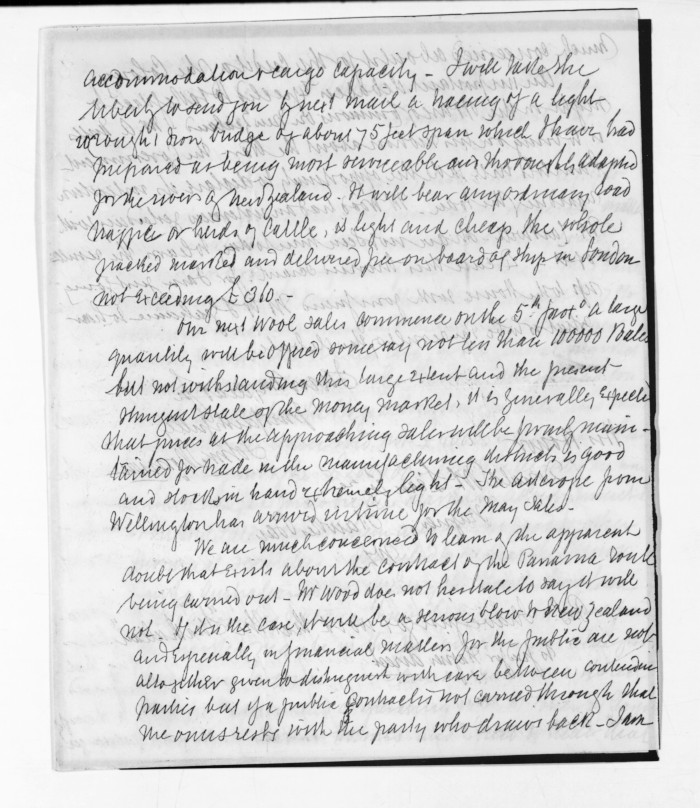 accommodation & cargo capacity – I will take the
liberty to send you by next mail a tracing of a light
wrought iron bridge of about 75 feet span which I have had
prepared as being most serviceable and thoroughly adapted
for the rivers of New Zealand. It will bear any ordinary road
traffic or herds of cattle, is light and cheap the whole
packed marked and delivered free on board of ship in London
not exceeding £310. –
Our next Wool sales commence on the 5th prox.o a large
quantity will be offered some say not less than 100000 Bales
but notwithstanding this large extent and the present
stringent state of the money market, it is generally expecte
that prices at the approaching sales will be firmly main-
tained for trade in the manufacturing districts is good
and stocks in hand extremely light – The Asterope from
Wellington has arrived in time for the May Sales –
We are much concerned to learn of the apparent
doubt that exists about the contract of the Panama route
being carried out – Mr Wood does not hesitate to say it will
not. If it is the case, it will be a serious blow to New Zealand
and especially in financial matters for the public are not
altogether given to distinguish with care between contendin
parties but if a public contract is not carried through that
the onus rests with the party who draws back – I am